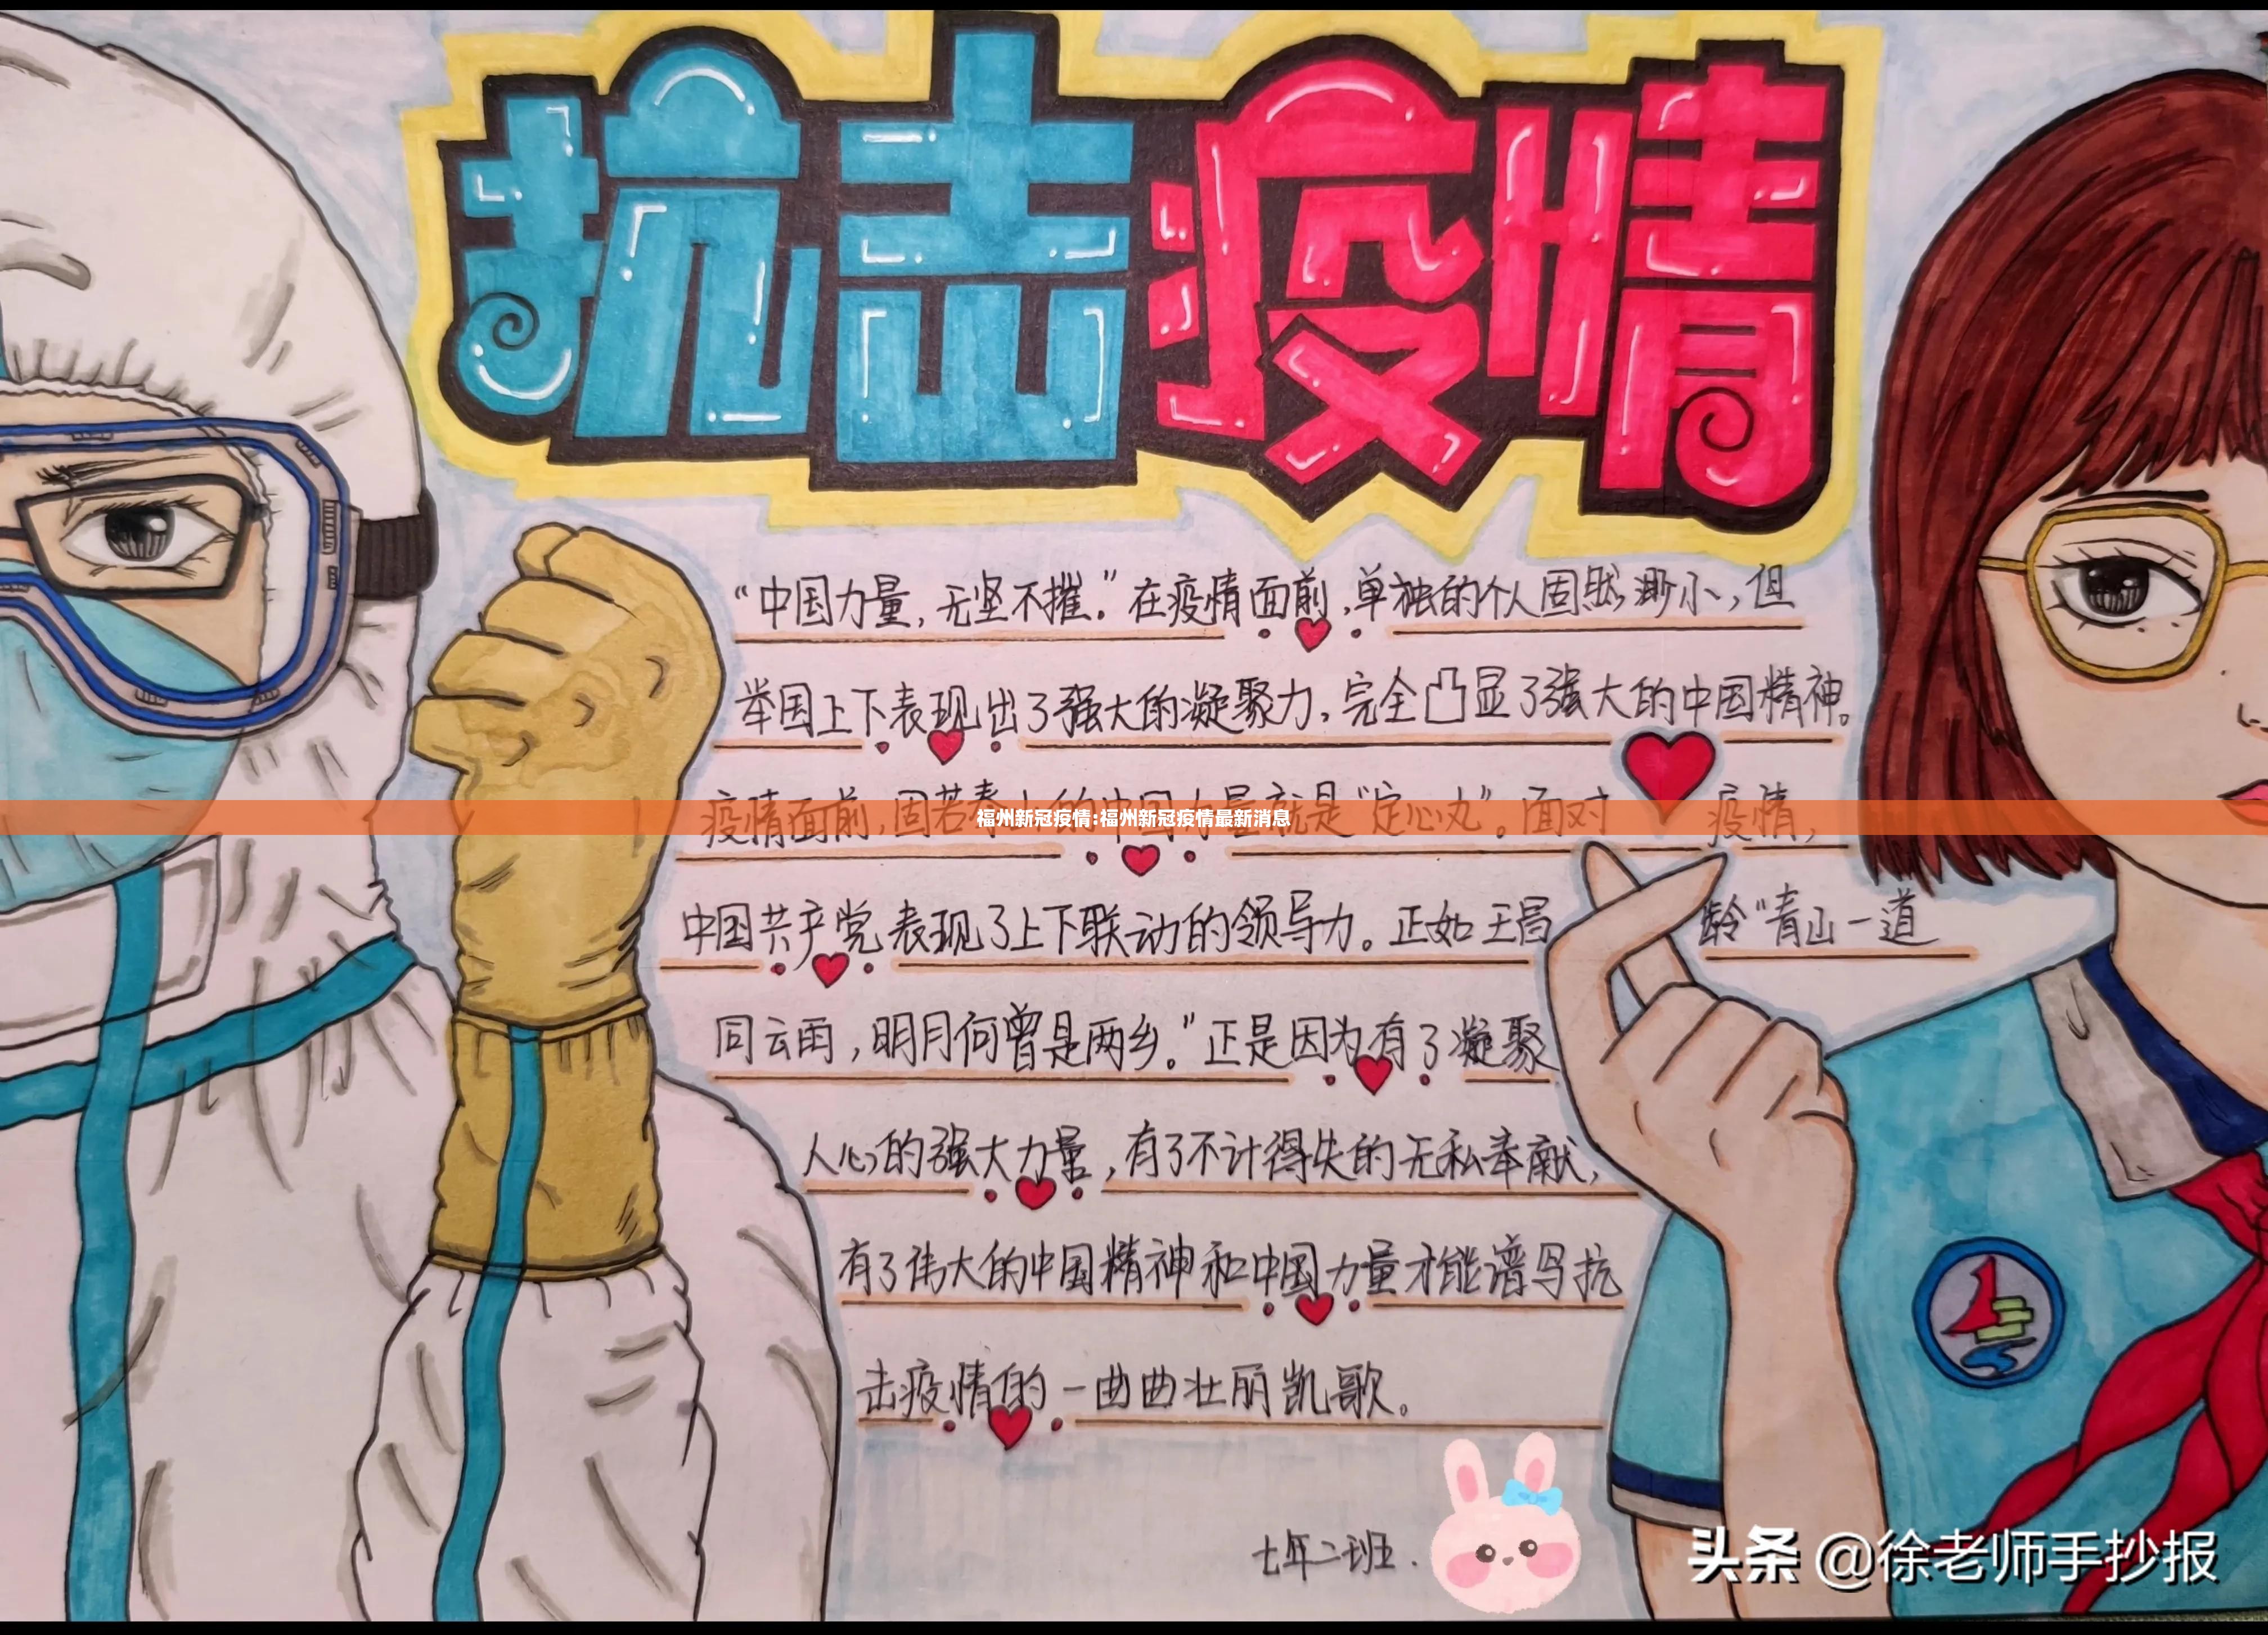 抗击疫情
“中国力量，无坚不摧。”在疫情面前，单独的个人固然渺小，但
举国上下表现出了强大的凝聚力，完全凸显了强大的中国精神。
疫情面前，固若泰山的中国力量就是“定心丸”。面对疫情，
福州新冠疫情:福州新冠疫情最新消息
中国共产党表现了上下联动的领导力。正如王昌龄“青山一道
同云雨，明月何曾是两乡。”正是因为有了凝聚
人心的强大力量，有了不计得失的无私奉献，
有了伟大的中国精神和中国力量才能谱写抗
击疫情的一曲曲壮丽凯歌。
七年二班.
头条 @徐老师手抄报